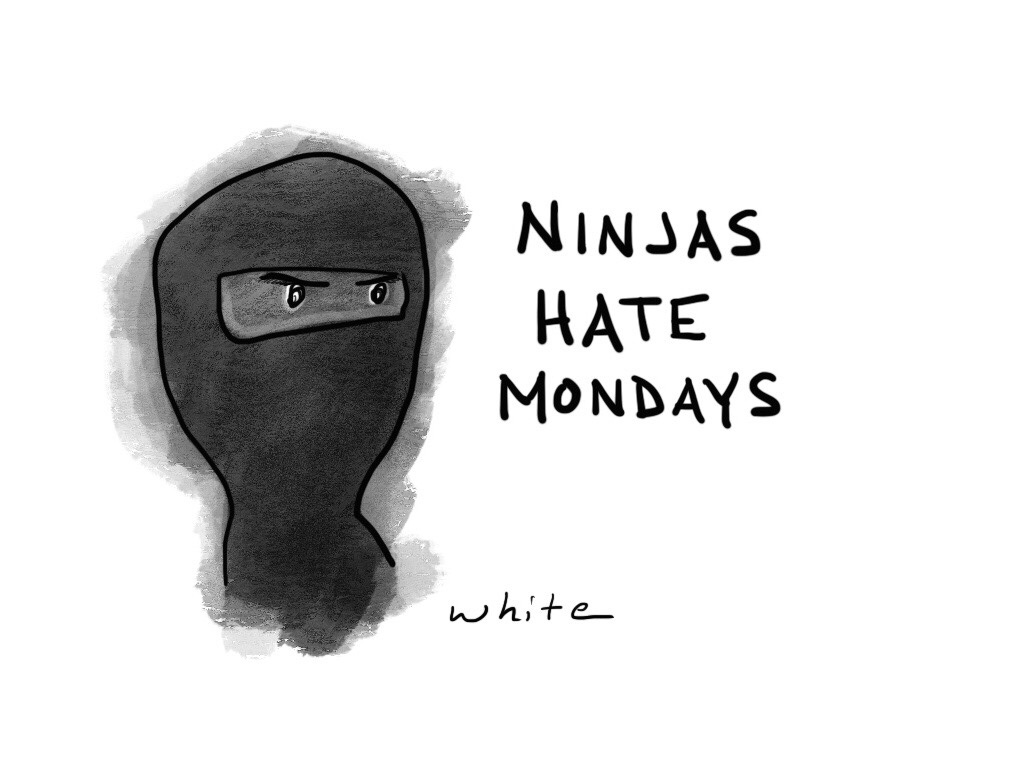 NINJAS
HATE
MONDAYS
white